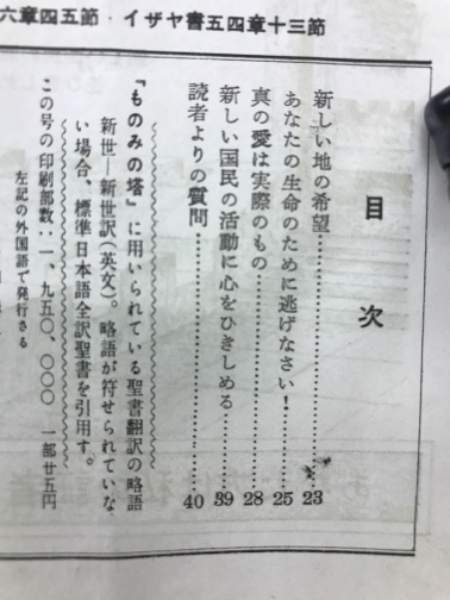 六章四五節・イザヤ書五四章十三節
目次
新しい地の希望……23
あなたの生命のために逃げなさい！……25
真の愛は実際のもの……28
新しい国民の活動に心をひきしめる……39
読者よりの質問……40
『ものみの塔』に用いられている聖書翻訳の略語
新世―新世訳(英文)。略語が符せられていな
い場合、標準日本語全訳聖書を引用す。
この号の印刷部数：一、九五〇、〇〇〇 一部廿五円
左記の外国語で発行さる